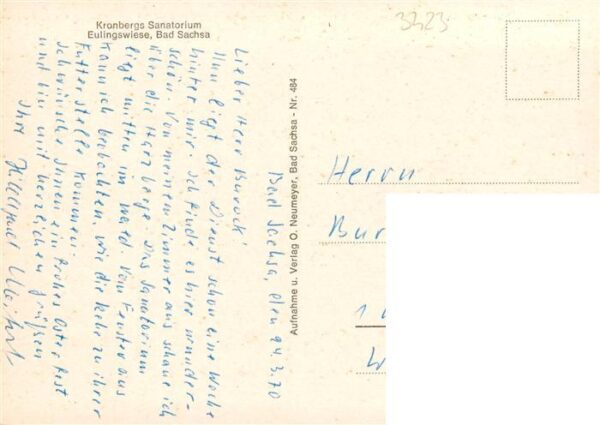 Kronbergs Sanatorium
Eulingswiese, Bad Sachsa
3323
Bad Sachsa, den 24.3.70
Lieber Herr Burock!
Nun liegt der Dienst schon eine Woche
hinter mir. Ich finde es hier wunder-
schön. Von meinem Zimmer aus schaue ich
über die Harzberge. Das Sanatorium
liegt mitten im Wald. Vom Fenster aus
kann ich beobachten, wie die Rehe zu ihrer
Futterstelle kommen.
Ich wünsche Ihnen ein frohes Osterfest
und bin mit herzlichen Grüßen
Ihre
Aufnahme u. Verlag O. Neumeyer, Bad Sachsa - Nr. 484
Herrn
Bur
1